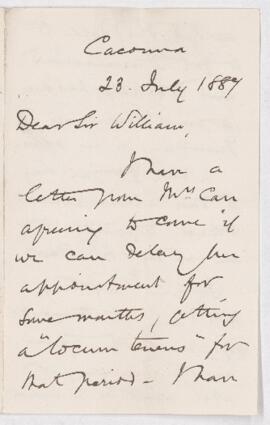 Cacouna
23. July 1887
Dear Sir William,
I have a
letter from Mrs Carr
agreeing to come "if
we can delay her
appointment for
some months, getting
a "locum tenens" for
that period - I have